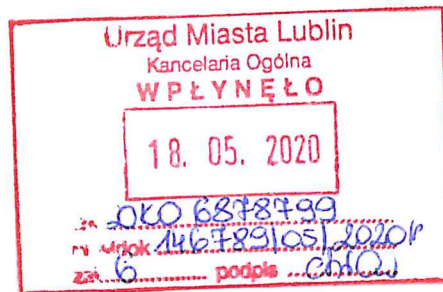 Urząd Miasta Lublin
Kancelaria Ogólna
WPŁYNĘŁO
18. 05. 2020
OKO 6878799
146789/05/2020
6 podpis